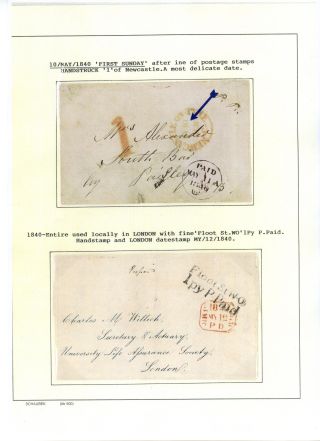 10/MAY/1840 'FIRST SUNDAY' after ine of postage stamps
HANDSTRUCK '1'of Newcastle.A most delicate date.
1
P. P.
Mrs Alexander
South Bar
by Paisley
PAID
MAY 11
1840
1840-Entire used locally in LONDON with fine'Floot St.WO'1Py P.Paid.
Handstamp and LONDON datestamp MY/12/1840.
Prepaid
Floot St.WO
1py P.Paid
Charles M. Willich,
Secretary & Actuary,
University Life Assurance Society,
London.
MY 12
PD
SCHAUBEK